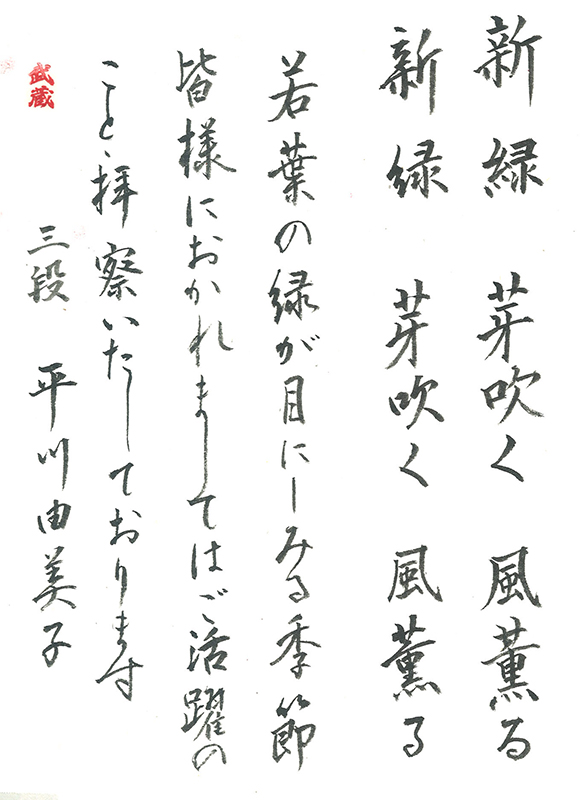 新緑 芽吹く 風薫る
新緑 芽吹く 風薫る
若葉の緑が目にしみる季節
皆様におかれましてはご活躍の
こと拝察いたしております
三段 平川由美子
武蔵